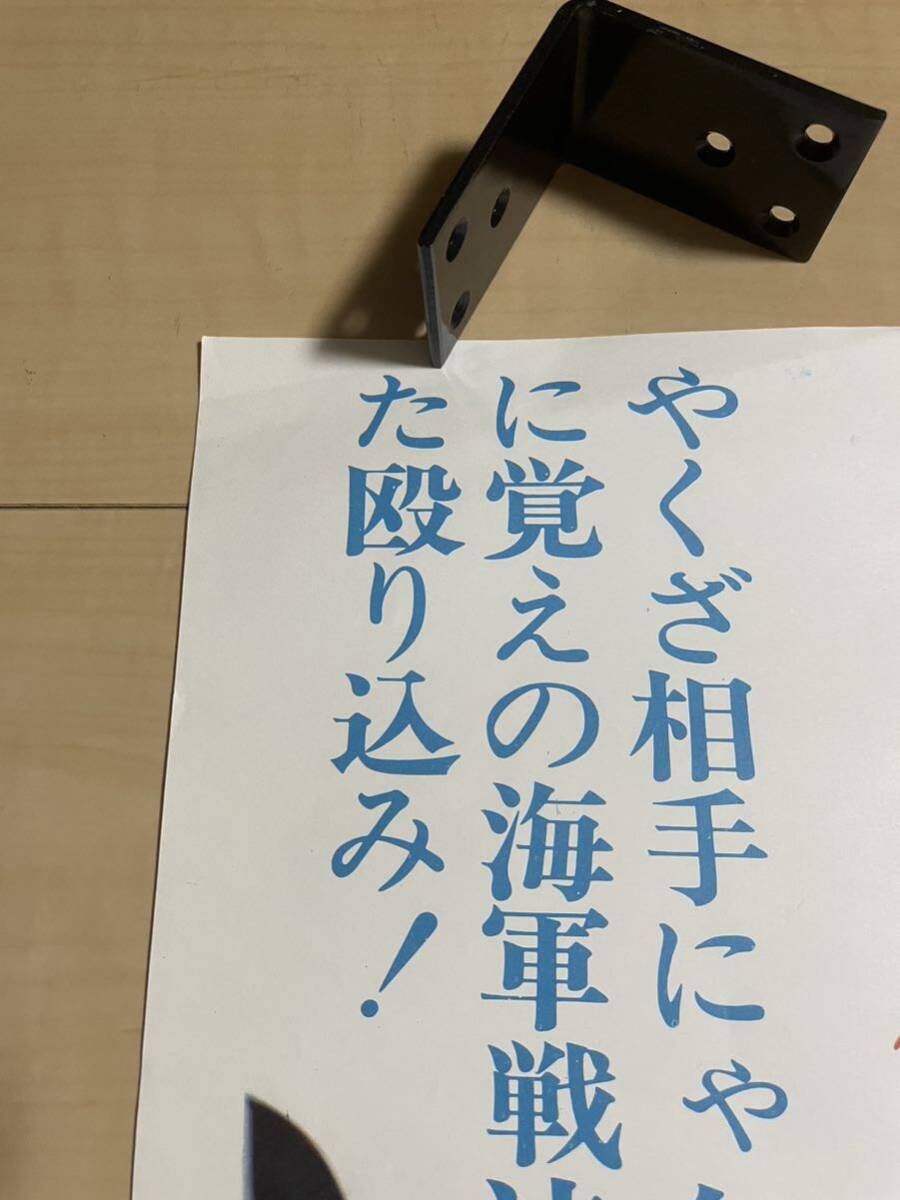 やくざ相手にゃ
に覚えの海軍戦
た殴り込み！